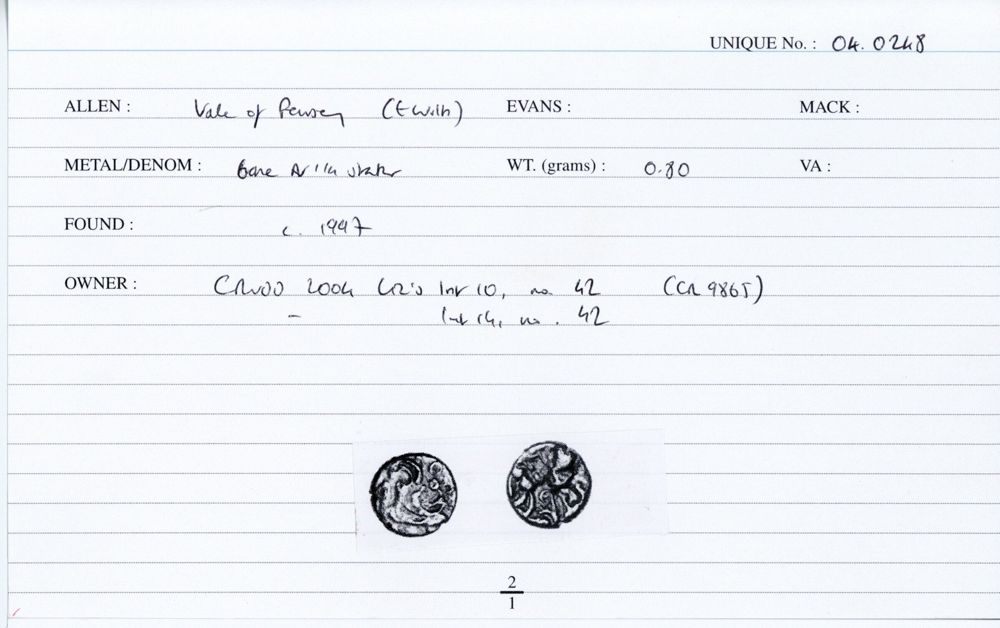 UNIQUE No. : 04.0248
ALLEN : Vale of Pewsey (E Wilts) EVANS : MACK :
METAL/DENOM : base AV 1/4 stater WT. (grams) : 0.80 VA :
FOUND : c. 1997
OWNER : 2004 10, no. 42 (CR 9865)
- 14, no. 42
2
1